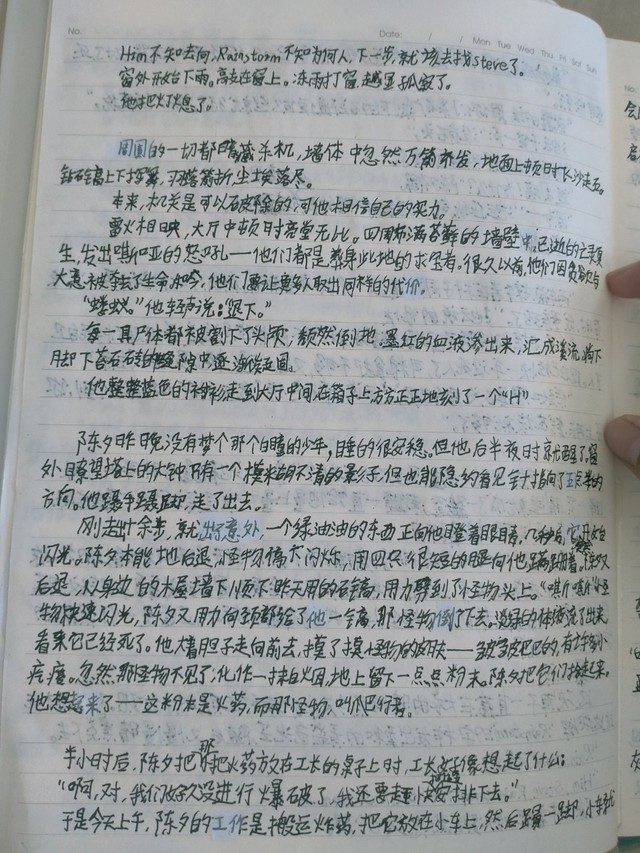 No.
Date: / / Mon Tue Wed Thu Fri Sat Sun
Him不知去向,Rainstorm不知为何人,下一步,就该去找steve了。
窗外开始下雨。高在窗上。冻雨打窗,越显孤寂了。
他把火灯熄了。
周围的一切都暗藏杀机,墙体中忽然万箭齐发,地面上顿时飞沙走石。
钻石高上下挥舞,羽箭折,尘埃落尽。
本来,机关是可以破除的,可他相信自己的实力。
雷火相映,大厅中顿时亮堂无比。四周布满苔藓的墙壁中,已逝的亡灵复
生,发出嘶哑的怒吼——他们都是葬身此地的求宝者。很久以前,他们因贪欲与
大意被夺去了生命,如今,他们要让更多人取出同样的代价。
“蝼蚁。”他轻声说:“退下。”
每一具尸体都被割下了头颅,颓然倒地。墨红的血液渗出来,汇成溪流,淌下
脚下苔石砖的缝隙中逐渐流回。
他整整蓝色的衬衫,走到大厅中间,在箱子上方方正正地刻了一个“H”
陈夕昨晚没有梦个那个白瞳的少年,睡的很安稳。但他后半夜时惊醒了,窗
外瞭望塔上的大钟只有一个模糊不清的影子,但也能隐约看见针指向了五点半的
方向。他蹑手蹑脚,走了出去。
刚走出十余步,就出了意外,一个绿油油的东西正向他瞪着眼睛,几秒后,它开始
闪光。陈夕本能地后退,怪物停下闪烁,用四只很短的腿向他蹒跚着。陈夕又
后退,从身边的木屋墙下顺下昨天用的石镐,用力劈到了怪物头上。“嘶嘶”怪
物快速闪光,陈夕又用力向颈部给了他一镐,那怪物倒了下去,淡绿的体液流了出来,
看来它已经死了。他大着胆子走向前去,摸了摸怪物的皮肤——皱皱巴巴的,有许多小
疙瘩。忽然那怪物不见了,化作一抹白烟,地上留下一点点粉末。陈夕把它们捡起来。
他想起来了——这粉末是火药,而那怪物,叫爬行者。
半小时后,陈夕把那把火药放在工长的桌子上时,工长好像想起了什么:
“啊,对,我们好久没进行爆破了,我还要赶快安排下去。”
于是今天上午,陈夕的工作是搬运炸药,把它放在小车上,然后踢一脚,小车就